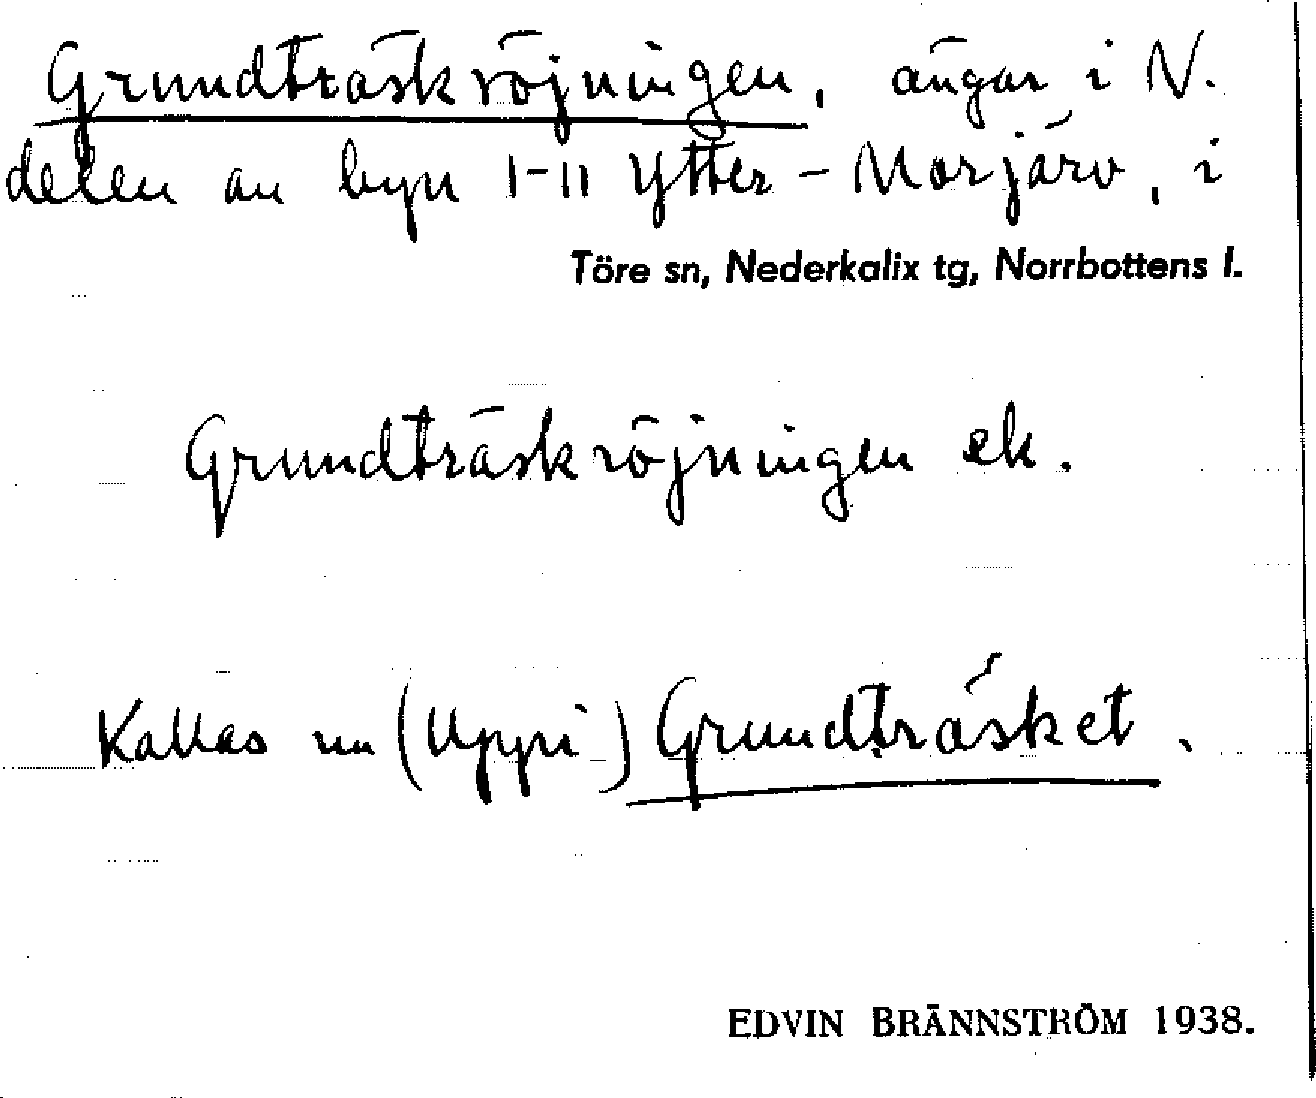 Grundträskröjningen, ängar i N.
delen av byn I-II Ytter-Morjärv, i
Töre sn, Nederkalix tg, Norrbottens l.
Grundträskröjningen ek.
Kallas nu (Uppi-) Grundträsket.
EDVIN BRÄNNSTRÖM 1938.